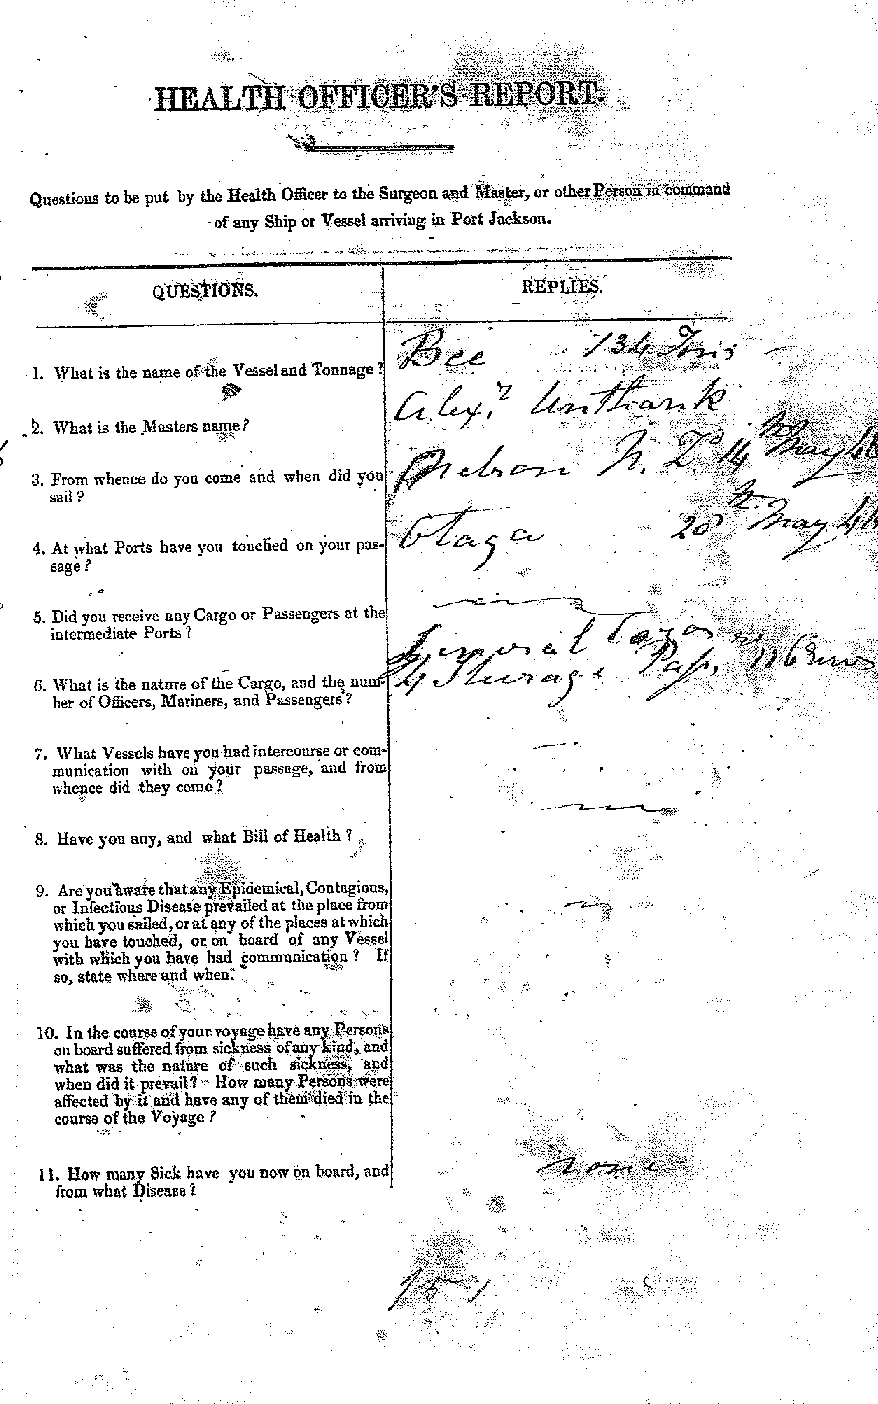 HEALTH OFFICER'S REPORT.
Questions to be put by the Health Officer to the Surgeon and Master, or other Person in command
of any Ship or Vessel arriving in Port Jackson.
QUESTIONS.
REPLIES.
1. What is the name of the Vessel and Tonnage?
Bee 134 Tons
2. What is the Masters name?
Alexr. Unthank
3. From whence do you come and when did you
sail?
Nelson N. Z. 14 May 46
4. At what Ports have you touched on your pas-
sage?
Otaga 20 May 46
5. Did you receive any Cargo or Passengers at the
intermediate Ports?
6. What is the nature of the Cargo, and the num-
ber of Officers, Mariners, and Passengers?
General Cargo
4 Steerage Pass.
7. What Vessels have you had intercourse or com-
munication with on your passage, and from
whence did they come?
8. Have you any, and what Bill of Health?
9. Are you aware that any Epidemical, Contagious,
or Infectious Disease prevailed at the place from
which you sailed, or at any of the places at which
you have touched, or on board of any Vessel
with which you have had communication? If
so, state where and when.
10. In the course of your voyage have any Persons
on board suffered from sickness of any kind, and
what was the nature of such sickness, and
when did it prevail? How many Persons were
affected by it and have any of them died in the
course of the Voyage?
11. How many Sick have you now on board, and
from what Disease?
none